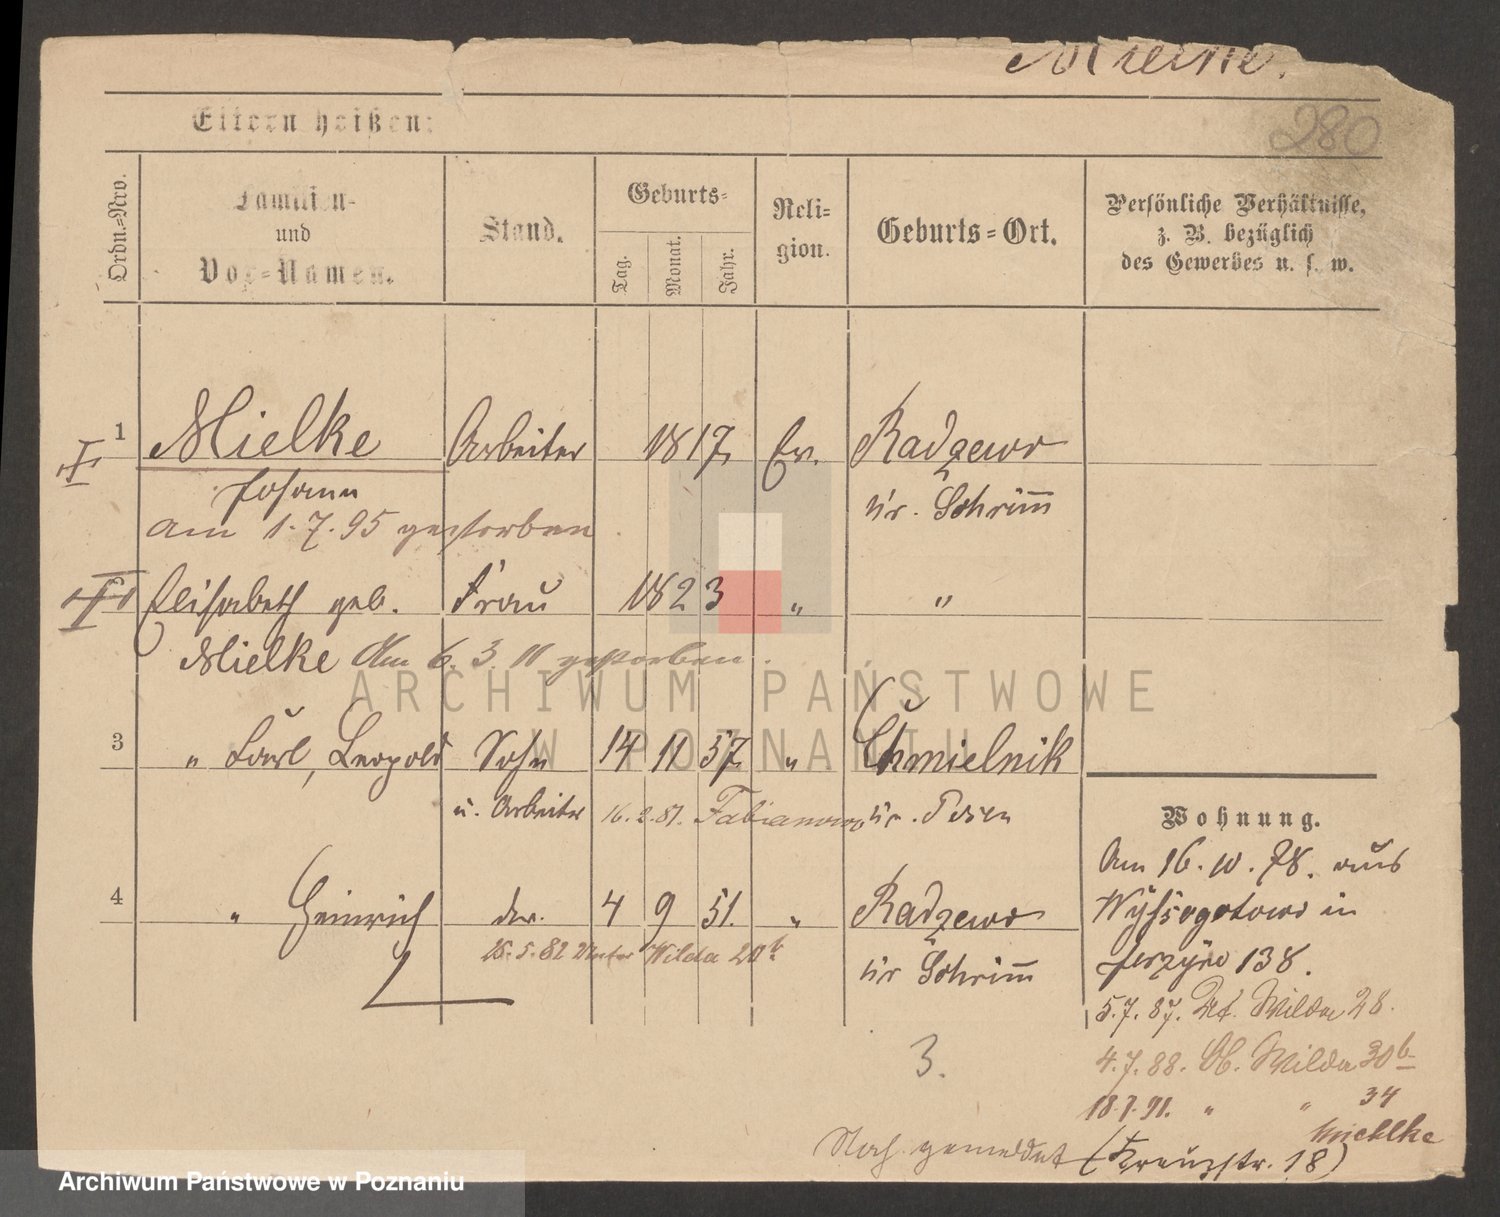 Mielke.
280
Eltern heißen:
Ordn.=Nro.
Familien-
und
Vor=Namen.
Stand.
Geburts=
Tag.
Monat.
Jahr.
Reli=
gion.
Geburts=Ort.
Persönliche Verhältnisse,
z. B. bezüglich
des Gewerbes u. s. w.
I
1 Mielke Arbeiter 1817 Ev. Radzewo
Johann
Kr. Schrim̅
am 1.7.95 gestorben
II
Elisabeth geb. Frau 1823 " "
Mielke Am 6. 3. 11 gestorben.
3 " Karl, Leopold Sohn 14 11 57 " Chmielnik
u. Arbeiter 16.2.81. Fabianowo Kr. Posen
4 " Heinrich der. 4 9 51. " Radzewo
26.5.82 Unter Wilda 20b
Kr Schrim̅
Wohnung.
Am 16.10.78. aus
Wyssogotowo in
Jerzyce 138.
5.7.87. Ut. Wilda 28.
4.7.88. Ob. Wilda 30b
18.7.91. " " 34
Miehlke
Noch gemeldet (Kreuzstr. 18)
3.
ARCHIWUM PAŃSTWOWE
W POZNANIU
Archiwum Państwowe w Poznaniu